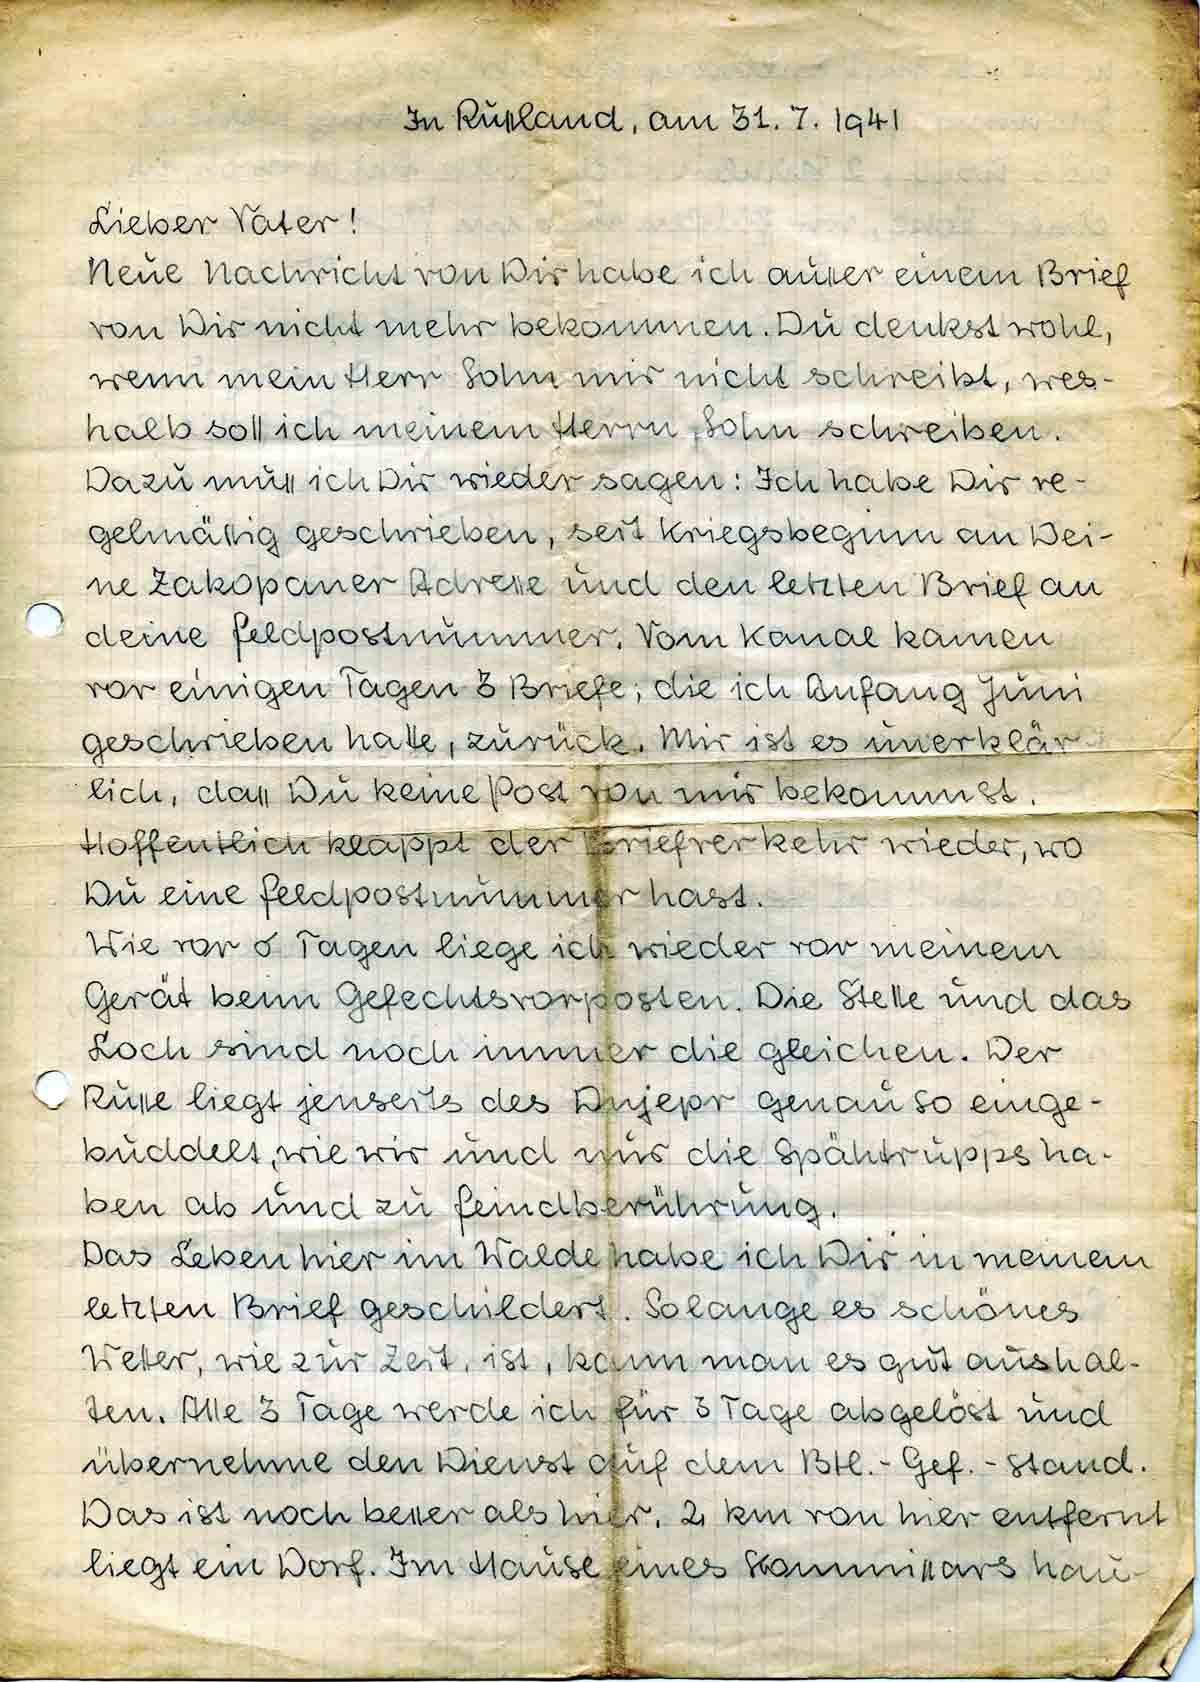 In Rußland, am 31.7.1941
Lieber Vater!
Neue Nachricht von Dir habe ich außer einem Brief
von Dir nicht mehr bekommen. Du denkst wohl,
wenn mein Herr Sohn mir nicht schreibt, wes-
halb soll ich meinem Herrn Sohn schreiben.
Dazu muß ich Dir wieder sagen: Ich habe Dir re-
gelmäßig geschrieben, seit Kriegsbeginn an Dei-
ne Zakopaner Adresse und den letzten Brief an
deine Feldpostnummer. Vom Kanal kamen
vor einigen Tagen 3 Briefe, die ich Anfang Juni
geschrieben hatte, zurück. Mir ist es unerklär-
lich, daß Du keine Post von mir bekommst.
Hoffentlich klappt der Briefverkehr wieder, wo
Du eine Feldpostnummer hast.
Wie vor 6 Tagen liege ich wieder vor meinem
Gerät beim Gefechtsvorposten. Die Stelle und das
Loch sind noch immer die gleichen. Der
Russe liegt jenseits des Dnjepr genau so einge-
buddelt, wie wir und nur die Spähtrupps ha-
ben ab und zu Feindberührung.
Das Leben hier im Walde habe ich Dir in meinem
letzten Brief geschildert. Solange es schönes
Wetter, wie zur Zeit, ist, kann man es gut aushal-
ten. Alle 3 Tage werde ich für 3 Tage abgelöst und
übernehme den Dienst auf dem Btl.-Gef.-stand.
Das ist noch besser als hier. 2 km von hier entfernt
liegt ein Dorf. Im Hause eines Kommissars hau-